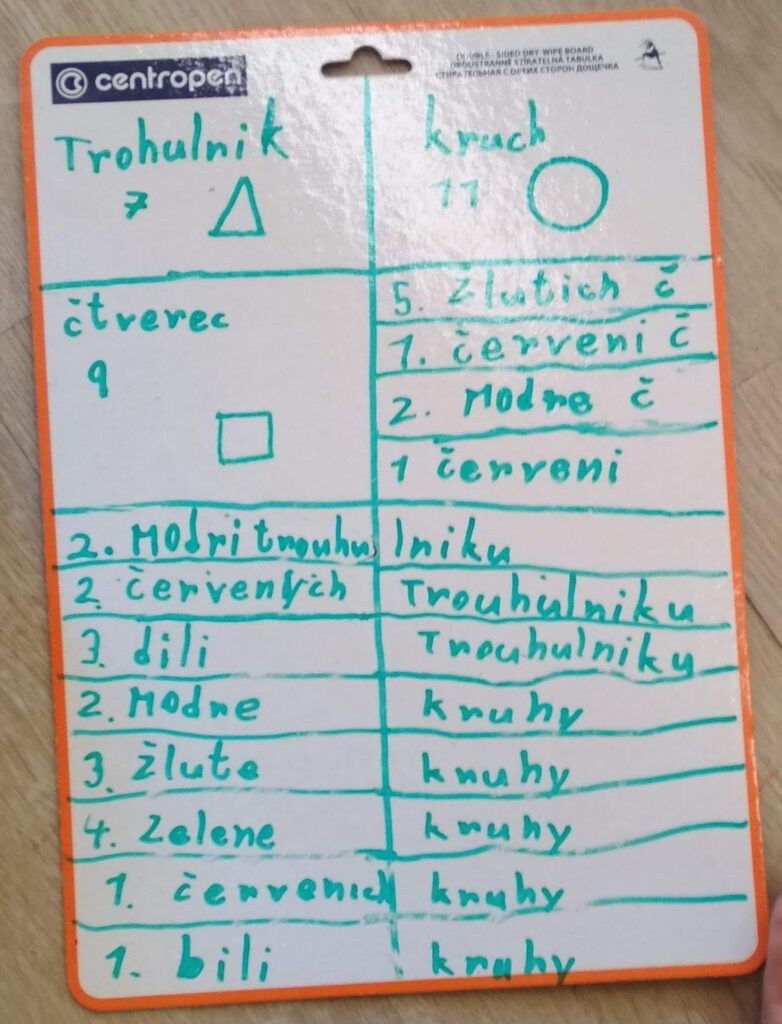 centropen
DOUBLE-SIDED DRY-WIPE BOARD
OBOUSTRANNĚ STÍRATELNÁ TABULKA
СТИРАТЕЛЬНАЯ С ОБЕИХ СТОРОН ДОЩЕЧКА
Trohulnik
7
kruch
11
čtverec
9
5. žlutich č
1. červeni č
2. Modre č
1 červeni
2. Modri trouhulniku
2. červených Trouhulniku
3. dili Trouhulniku
2. Modre kruhy
3. žlute kruhy
4. zelene kruhy
1. červenich kruhy
1. bili kruhy